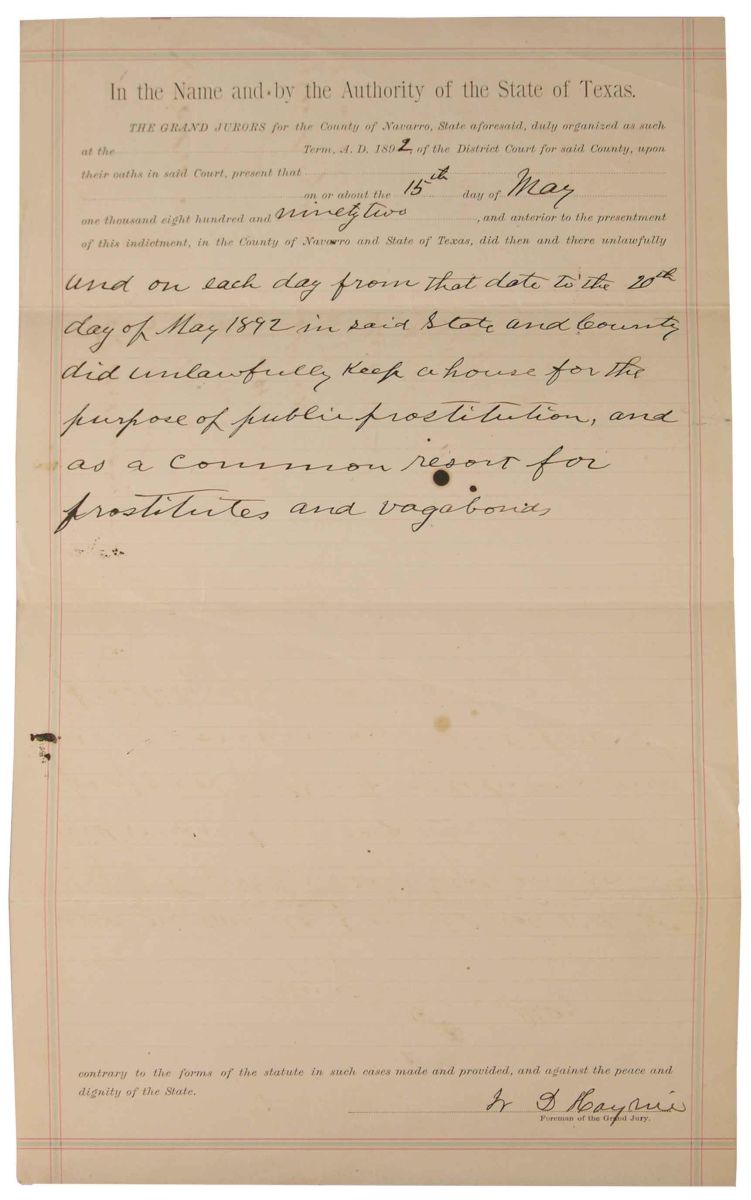 In the Name and by the Authority of the State of Texas.
THE GRAND JURORS for the County of Navarro, State aforesaid, duly organized as such
at the Term, A. D. 1892, of the District Court for said County, upon
their oaths in said Court, present that
on or about the 15th day of May
one thousand eight hundred and ninety two, and anterior to the presentment
of this indictment, in the County of Navarro and State of Texas, did then and there unlawfully
and on each day from that date to the 20th
day of May 1892 in said State and County
did unlawfully keep a house for the
purpose of public prostitution, and
as a common resort for
prostitutes and vagabonds
contrary to the forms of the statute in such cases made and provided, and against the peace and
dignity of the State.
D Haynie
Foreman of the Grand Jury.